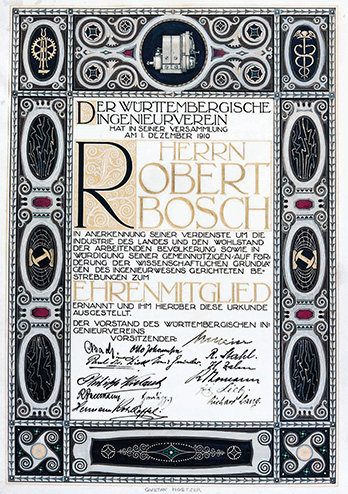 DER WÜRTTEMBERGISCHE
INGENIEURVEREIN
HAT IN SEINER VERSAMMLUNG
AM 1. DEZEMBER 1910
HERRN
ROBERT
BOSCH
IN ANERKENNUNG SEINER VERDIENSTE UM DIE
INDUSTRIE DES LANDES UND DEN WOHLSTAND
DER ARBEITENDEN BEVÖLKERUNG SOWIE IN
WÜRDIGUNG SEINER GEMEINNÜTZIGEN AUF FÖR-
DERUNG DER WISSENSCHAFTLICHEN GRUNDLA-
GEN DES INGENIEURWESENS GERICHTETEN BE-
STREBUNGEN ZUM
EHRENMITGLIED
ERNANNT UND IHM HIERÜBER DIESE URKUNDE
AUSGESTELLT.
DER VORSTAND DES WÜRTTEMBERGISCHEN IN-
GENIEURVEREINS
VORSITZENDER: